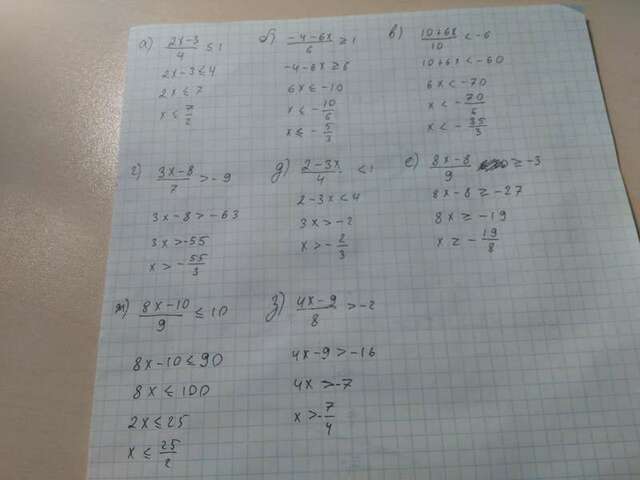 а) (2x-3)/4 ≤ 1
2x-3 ≤ 4
2x ≤ 7
x ≤ 7/2
б) (-4-6x)/6 ≥ 1
-4-6x ≥ 6
6x ≤ -10
x ≤ -10/6
x ≤ -5/3
в) (10+6x)/10 < -6
10+6x < -60
6x < -70
x < -70/6
x < -35/3
г) (3x-8)/7 > -9
3x-8 > -63
3x > -55
x > -55/3
д) (2-3x)/4 < 1
2-3x < 4
3x > -2
x > -2/3
е) (8x-8)/9 ≥ -3
8x-8 ≥ -27
8x ≥ -19
x ≥ -19/8
ж) (8x-10)/9 ≤ 10
8x-10 ≤ 90
8x ≤ 100
2x ≤ 25
x ≤ 25/2
з) (4x-9)/8 > -2
4x-9 > -16
4x > -7
x > -7/4